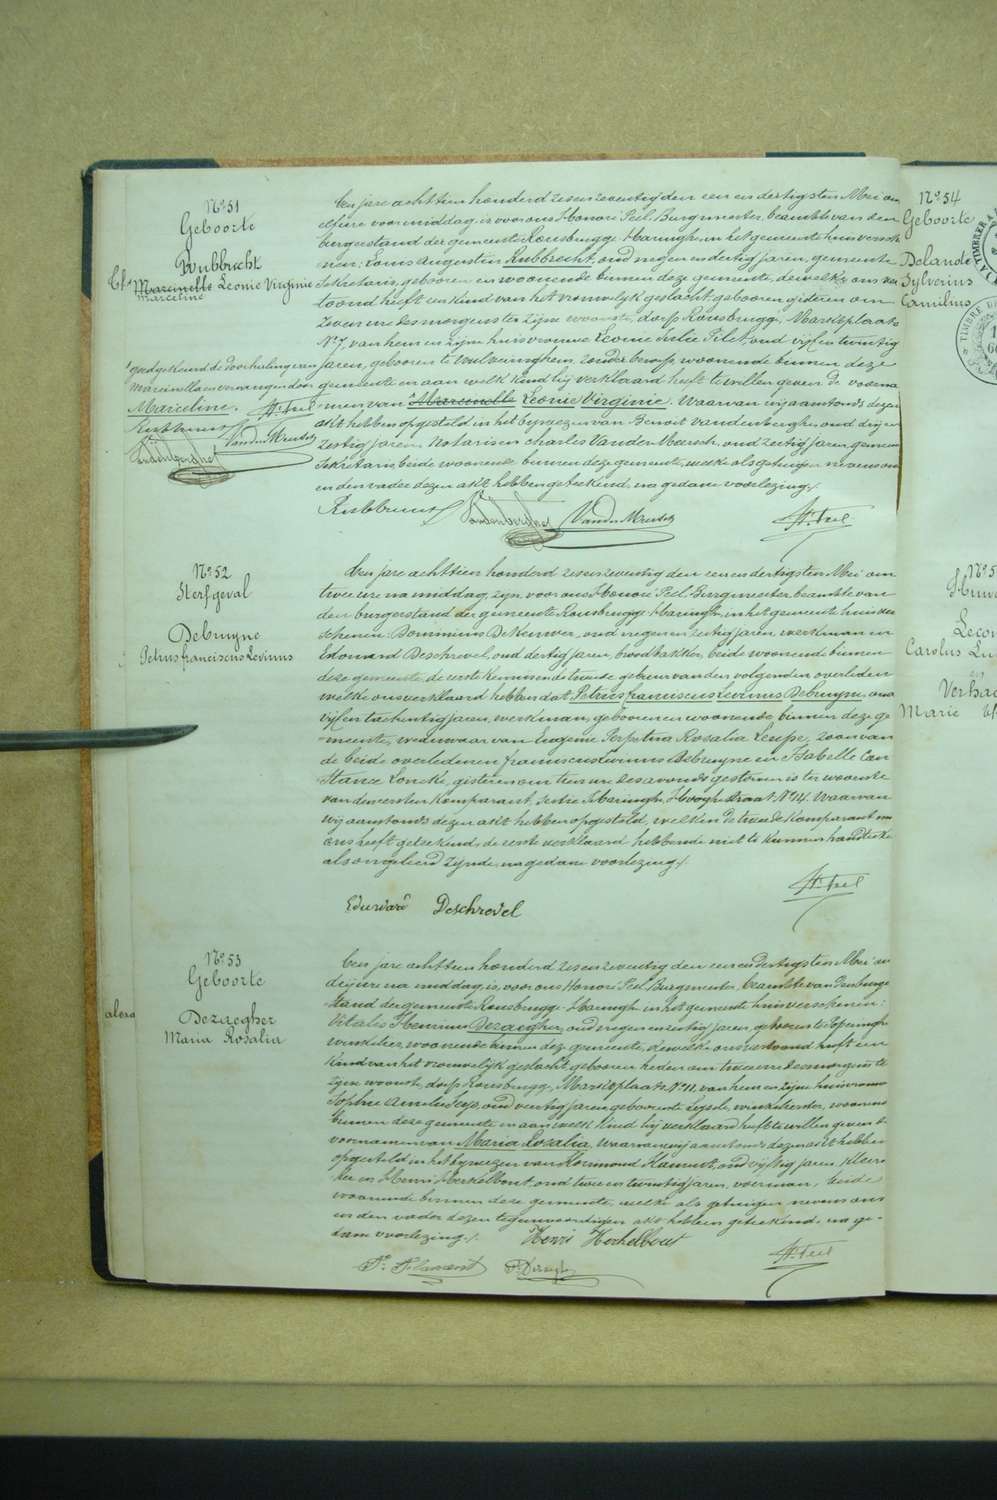 N° 51
Geboorte
Rubbrecht
Marcunelle Leonie Virginie
Marceline
goedgekeurd de doorhaling van
Marcunella en vervangen door
Marceline.
Een jare achttien honderd zes en zeventig den een en dertigsten Mei om
elf ure voormiddag, is voor ons Honoré Peel Burgmeester, beambte van den
burgerstand der gemeente Rousbrugge-Haringhe, in het gemeente huis versche
nen: Louis Augustin Rubbrecht, oud negen en dertig jaren, gemeente
Sekretaris, geboren en woonende binnen deze gemeente, dewelke ons ver
toond heeft een kind van het vrouwelijk geslacht, geboren gisteren om
zeven ure des morgens ter zijne woonste, dorp Rousbrugge, Marktplaats
N° 7, van hem en zijne huisvrouwe Leonie Julie Filet, oud vijf en twintig
jaren, geboren te Wulveringhem, zonder beroep, woonende binnen deze
gemeente en aan welk kind hij verklaard heeft te willen geven de voorna
men van Marcunelle Leonie Virginie. Waarvan wij aanstonds dezen
akt hebben opgesteld in het bijwezen van Benoit Vandenberghe, oud drij en
zestig jaren, Notaris en Charles Vander Meersch, oud zestig jaren, gemeente
Sekretaris beide woonende binnen deze gemeente, welke als getuigen nevens ons
en den vader dezen akt hebben geteekend, na gedane voorlezing.
Vandenberghe VanderMeersch H. Peel
N° 52
Sterfgeval
Debruyne
Petrus franciscus Levinus
Een jare achttien honderd zes en zeventig den een en dertigsten Mei om
twee ure na middag, zijn voor ons Honoré Peel Burgmeester, beambte van
den burgerstand der gemeente Rousbrugge-Haringhe, in het gemeente huis ver
schenen: Dominicus De Keuwer, oud negen en zestig jaren, werkman en
Edouard Deschrevel, oud dertig jaren, broodbakker, beide woonende binnen
deze gemeente, de eerste kennis en de tweede gebuur van den volgenden overleden
welke ons verklaard hebben dat Petrus franciscus Levinus Debruyne, oud
vijf en tachentig jaren, werkman, geboren en woonende binnen deze ge
meente, weduwaar van Eugenie Perpetua Rosalia Leupe, zoon van
de beide overledenen franciscus Levinus Debruyne en Isabelle Con
stance Loncke, gisteren om tien ure des avonds gestorven is ter woonste
van den eersten komparant, sectie Haringhe, Hooghe straat, N° 14. Waarvan
wij aanstonds dezen akt hebben opgesteld, welken de tweede komparant met
ons heeft geteekend, de eerste verklaard hebbende niet te kunnen handteeke
als ongeleerd zijnde, na gedane voorlezing.
Eduward Deschrevel
H. Peel
N° 53
Geboorte
Dezaegher
Maria Rosalia
Een jare achttien honderd zes en zeventig den een en dertigsten Mei om
drij ure na middag, is voor ons Honoré Peel Burgmeester, beambte van den burger
stand der gemeente Rousbrugge-Haringhe in het gemeente huis verschenen:
Vitalis Henricus Dezaegher, oud negen en dertig jaren, geboren te Poperinghe
winkelier, woonende binnen deze gemeente, dewelke ons vertoond heeft een
kind van het vrouwelijk geslacht, geboren heden om twee ure des morgens te
zijne woonst, dorp Rousbrugge, Marktplaats, N° 11, van hem en zijne huisvrouw
Sophie Amelie oud veertig jaren, geboren te Leysele, winkelierster, woonende
binnen deze gemeente en aan welk kind hij verklaard heeft te willen geven de
voornamen van Maria Rosalia. Waarvan wij aanstonds dezen akt hebben
opgesteld in het bijwezen van oud vijftig jaren, kleer
en Henri Herkelbout, oud twee en twintig jaren, voerman, beide
woonende binnen deze gemeente, welke als getuigen nevens ons
en den vader dezen tegenwoordigen akt hebben geteekend, na ge-
dane voorlezing.
Henri Herkelbout
H. Peel
N° 54
Geboorte
Delande
Sylverius
Camilius
Carolus Lu
Marie